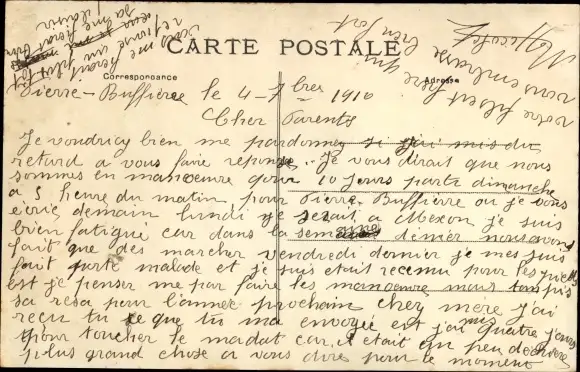 CARTE POSTALE
Correspondance
Adresse
Pierre-Buffière le 4-7bres 1910
Cher Parents
Je voudriez bien me pardonnez si j'ai mis du
retard a vous faire reponse. Je vous dirait que nous
sommes en manoeuvre pour 10 jours partie dimanche
a 5 heure du matin pour Pierre Buffiere ou je vous
écrie, demain lundi je serait a je suis
bien fatigué car dans la semaine dernier nous avons
fait que des marcher vendredi dernier je mes suis
fait porte malade et je suis etait recenu pour les pieds
est je penser me pas faire les manoeuvre mais tampis
sa resa pour l'année prochain cher mère j'ai
recu tu ce que tu ma envoyée est j'ai mis quatre jours
pour toucher le madat car il était un peu dechirere
plus grand chose a vous dire pour le moment
votre fils
vous embrasse
bien fort
vous me
ferait
reponse un plus tot
sa me ferait bien
plaisir